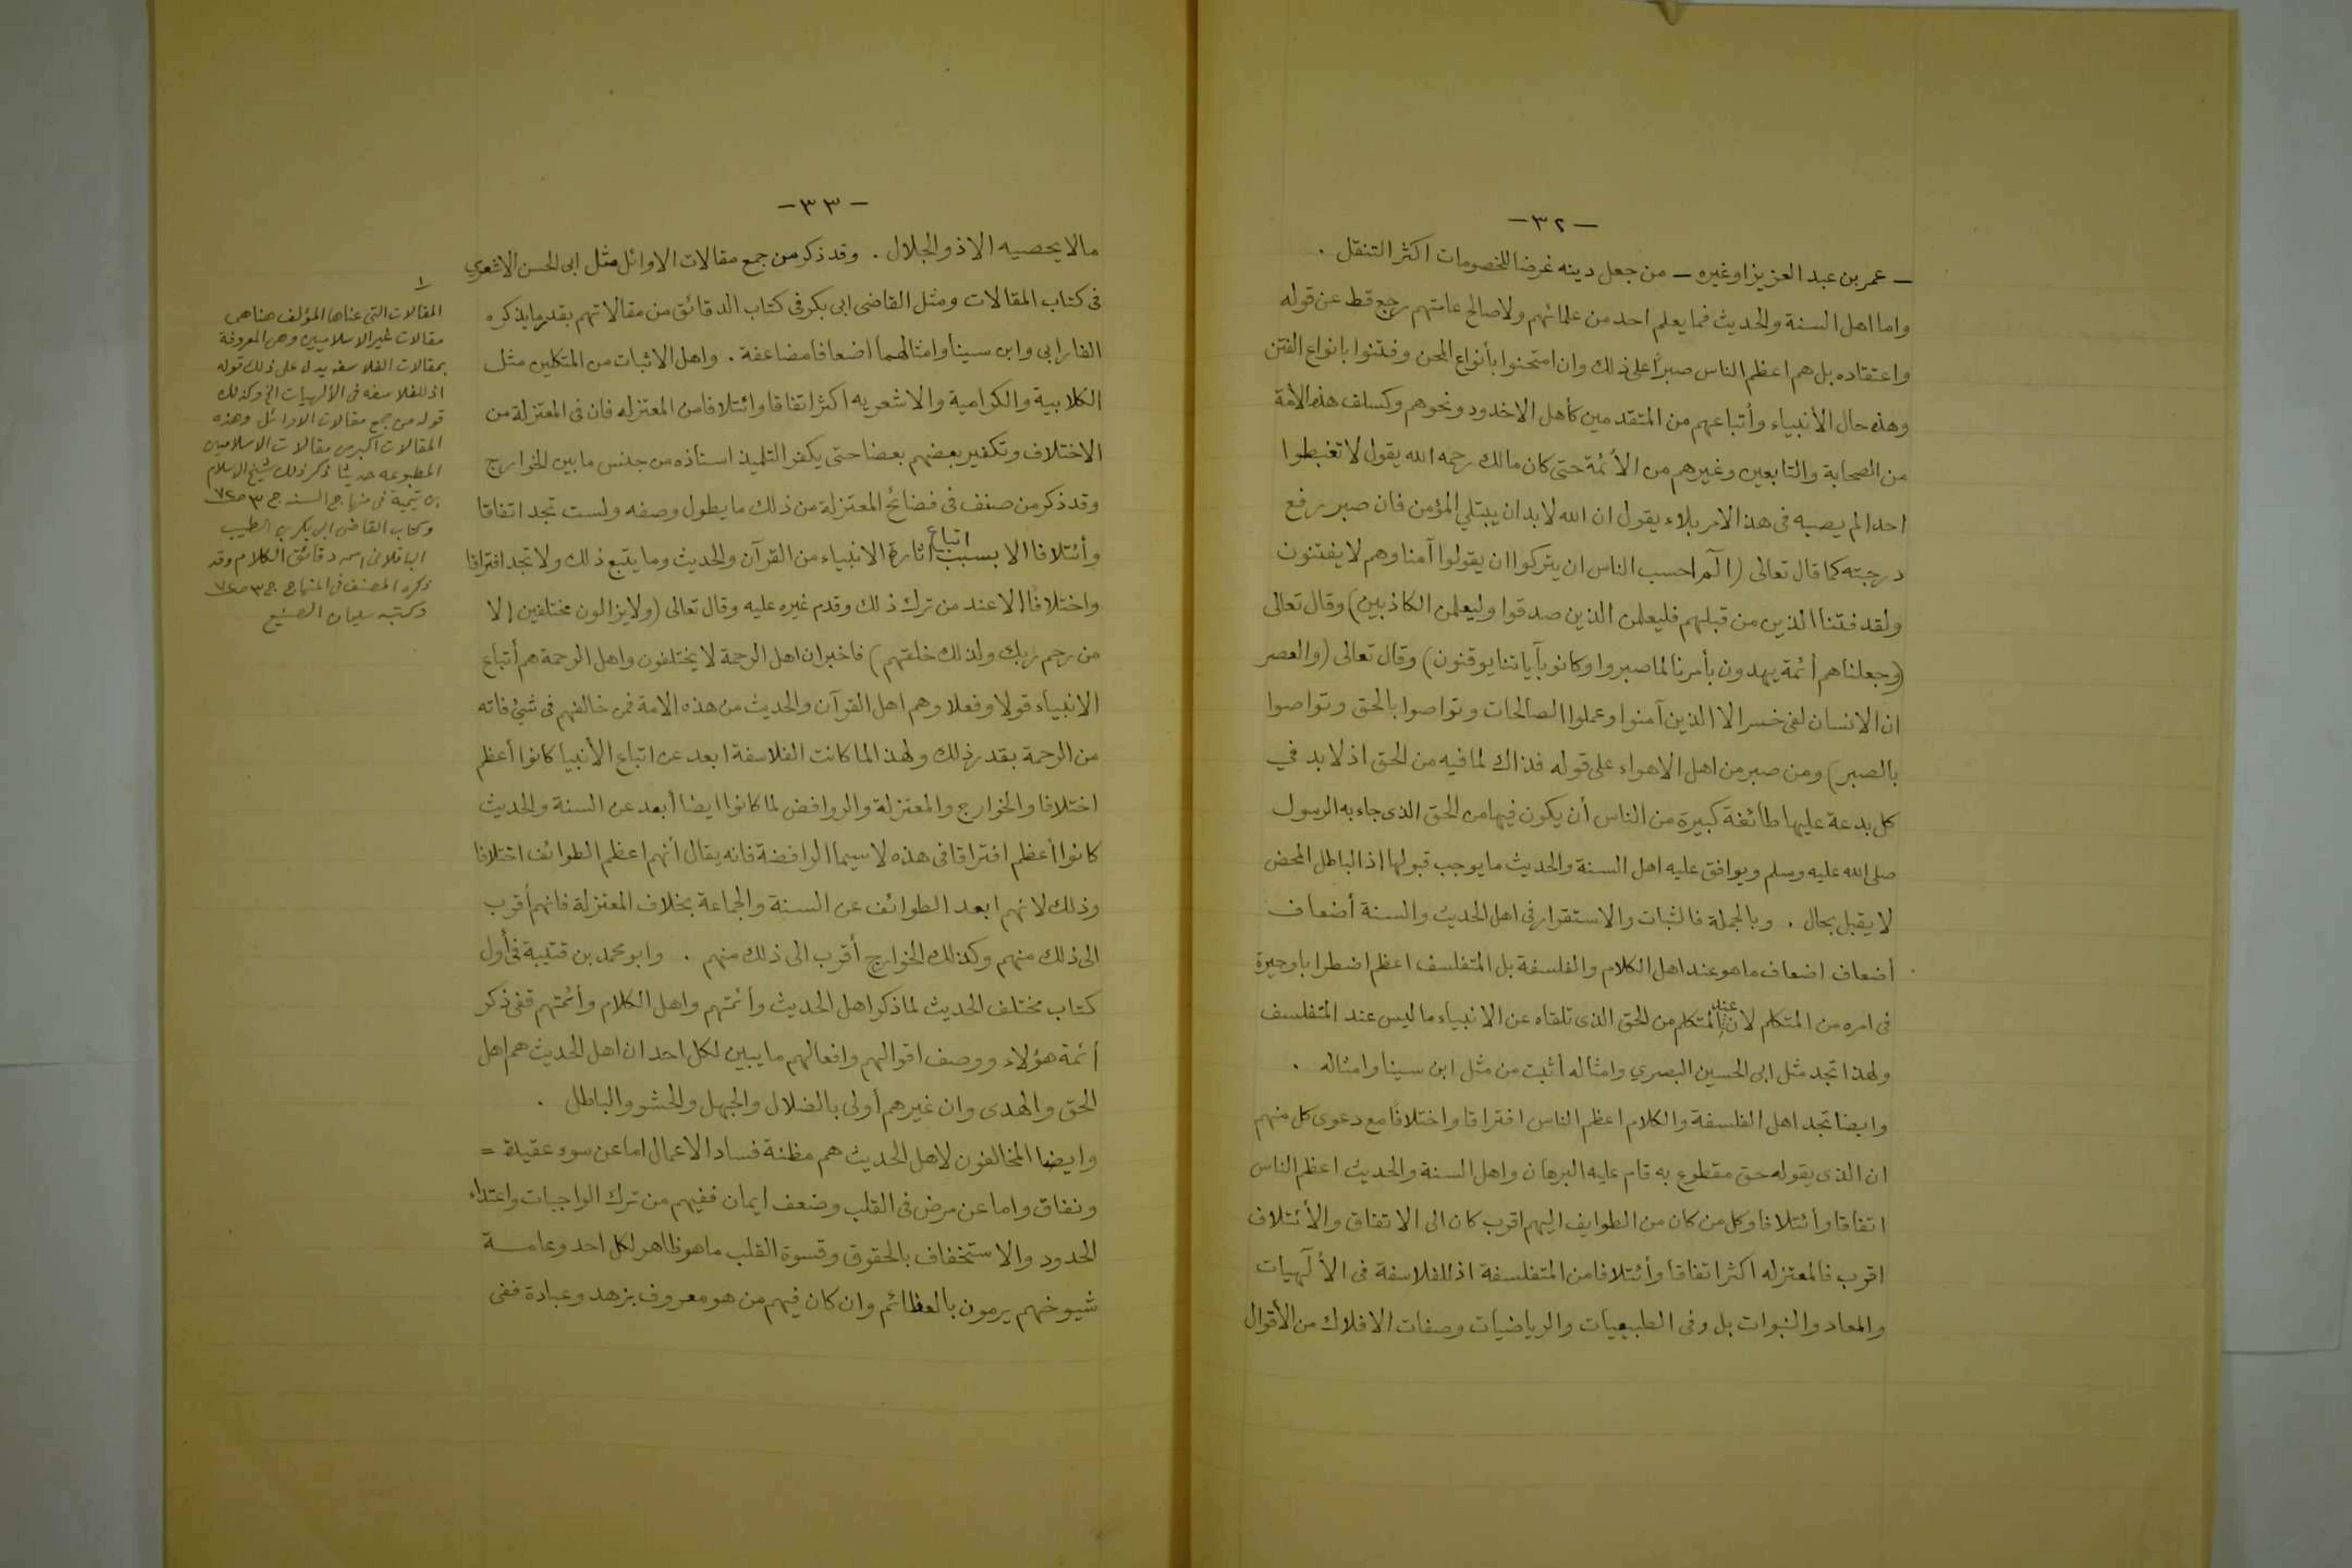 -٣٢-
– عمر بن عبد العزيز او غيره – من جعل دينه غرضا للخصومات اكثر التنقل .
واما اهل السنة والحديث فما يعلم احد من علمائهم ولا صالح عامتهم رجع قط عن قوله
واعتقاده بل هم اعظم الناس صبراً على ذلك وان امتحنوا بأنواع المحن وفتنوا بانواع الفتن
وهذه حال الأنبياء وأتباعهم من المتقدمين كأهل الاخدود ونحوهم وكسلف هذه الأمة
من الصحابة والتابعين وغيرهم من الأئمة حتى كان مالك رحمه الله يقول لا تغبطوا
احدا لم يصبه في هذ الامر بلاء يقول ان الله لا بد ان يبتلي المؤمن فان صبر رفع
درجته كما قال تعالى (آلم احسب الناس ان يتركوا ان يقولوا آمنا وهم لا يفتنون
ولقد فتنا الذين من قبلهم فليعلمن الذين صدقوا وليعلمن الكاذبين) وقال تعالى
(وجعلناهم أئمة يهدون بأمرنا لما صبروا وكانو بآياتنا يوقنون) وقال تعالى (والعصر
ان الانسان لفى خسر الا الذين آمنوا وعملوا الصالحات وتواصوا بالحق وتواصوا
بالصبر) ومن صبر من اهل الاهواء على قوله فذاك لما فيه من الحق اذ لا بد في
كل بدعة عليها طائفة كبيرة من الناس أن يكون فيها من الحق الذى جاء به الرسول
صلى الله عليه وسلم ويوافق عليه اهل السنة والحديث ما يوجب قبولها اذ الباطل المحض
لا يقبل بحال . وبالجملة فالثبات والاستقرار فى اهل الحديث والسنة أضعاف
أضعاف اضعاف ما هو عند اهل الكلام والفلسفة بل المتفلسف اعظم اضطرابا وحيرة
فى امره من المتكلم لان عند المتكلم من الحق الذى تلقاه عن الانبياء ما ليس عند المتفلسف
ولهذا تجد مثل ابى الحسين البصري وامثاله أثبت من مثل ابن سينا وامثاله .
وايضا تجد اهل الفلسفة والكلام اعظم الناس افتراقا واختلافًا مع دعوى كل منهم
ان الذى يقوله حق مقطوع به قام عليه البرهان واهل السنة والحديث اعظم الناس
اتفاقا وأئتلافا وكل من كان من الطوايف اليهم اقرب كان الى الاتفاق والأئتلاف
اقرب فالمعتزله اكثر اتفاقا وأئتلافا من المتفلسفة اذ للفلاسفة فى الألٓهيات
والمعاد والنبوات بل وفى الطبيعيات والرياضيات وصفات الافلاك من الأقوال
-٣٣-
مالا يحصيه الا ذو الجلال . وقد ذكر من جمع مقالات الاوائل مثل ابى الحسن الاشعري
فى كتاب المقالات ومثل القاضى ابى بكر فى كتاب الدقائق من مقالاتهم بقدر ما يذكره
الفارابى وابن سينا وامثالهما اضعافا مضاعفة . واهل الاثبات من المتكلمين مثل
الكلابية والكرامية والاشعريه اكثر اتفاقا وائتلافا من المعتزله فان فى المعتزلة من
الاختلاف وتكفير بعضهم بعضا حتى يكفر التلميذ استاذه من جنس ما بين الخوارج
وقد ذكر من صنف فى فضائح المعتزلة من ذلك ما يطول وصفه ولست تجد اتفاقا
وأئتلافا الا بسبب اتباع اثارة الانبياء من القرآن والحديث وما يتبع ذلك ولا تجد افتراقا
واختلافًا الا عند من ترك ذلك وقدم غيره عليه وقال تعالى (ولا يزالون مختلفين الا
من رحم ربك ولذلك خلقهم) فاخبر ان اهل الرحمة لا يختلفون واهل الرحمة هم أتباع
الانبياء قولا وفعلا وهم اهل القرآن والحديث من هذه الامة فمن خالفهم فى شئ فاته
من الرحمة بقدر ذلك ولهذا لما كانت الفلاسفة ابعد عن اتباع الأنبيا كانوا أعظم
اختلافا والخوارج والمعتزلة والروافض لما كانوا ايضا أبعد عن السنة والحديث
كانوا أعظم افتراقا فى هذه لا سيما الرافضة فانه يقال أنهم اعظم الطوائف اختلافا
وذلك لانهم ابعد الطوائف عن السنة والجماعة بخلاف المعتزلة فانهم أقرب
الى ذلك منهم وكذلك الخوارج أقرب الى ذلك منهم . وابو محمد بن قتيبة فى أول
كتاب مختلف الحديث لما ذكر اهل الحديث وأئمتهم واهل الكلام وأئمتهم قفى ذكر
أئمة هؤلاء ووصف اقوالهم وافعالهم ما يبين لكل احد ان اهل الحديث هم اهل
الحق والهدى وان غيرهم أولى بالضلال والجهل والحشو والباطل .
وايضا المخالفون لاهل الحديث هم مظنة فساد الاعمال اما عن سوء عقيدة =
ونفاق واما عن مرض فى القلب وضعف ايمان ففيهم من ترك الواجبات واعتداء
الحدود والاستخفاف بالحقوق وقسوة القلب ما هو ظاهر لكل احد وعامة
شيوخهم يرمون بالعظائم وان كان فيهم من هو معروف بزهد وعبادة ففى
١
المقالات التى عناها المؤلف هنا هى
مقالات غير الاسلاميين وهى المعروفة
بمقالات الفلاسفه يدل على ذلك قوله
اذ للفلاسفه فى الألهيات الخ وكذلك
قوله من جمع مقالات الاوائل وهذه
المقالات اكبر من مقالات الاسلاميين
المطبوعه حديثا ذكر ذلك شيخ الاسلام
بن تيمية فى منهاج السنه ج ٣ ص ٧٢
وكتاب القاضى ابى بكر بن الطيب
الباقلانى اسمه دقائق الكلام وقد
ذكره المصنف فى المنهاج ج ٣ ص ٧٢
وكتبه سليمان الصنيع